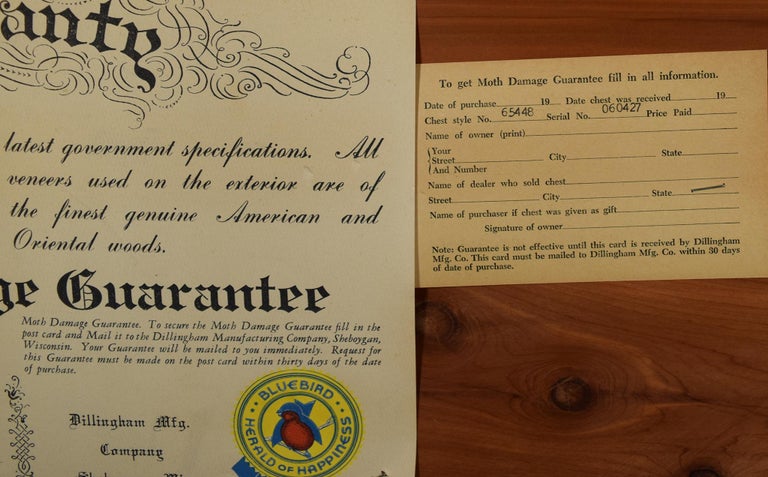 anty
latest government specifications. All
veneers used on the exterior are of
the finest genuine American and
Oriental woods.
ge Guarantee
Moth Damage Guarantee. To secure the Moth Damage Guarantee fill in the
post card and Mail it to the Dillingham Manufacturing Company, Sheboygan,
Wisconsin. Your Guarantee will be mailed to you immediately. Request for
this Guarantee must be made on the post card within thirty days of the date
of purchase.
Dillingham Mfg.
Company
BLUEBIRD
HERALD OF HAPPINESS
To get Moth Damage Guarantee fill in all information.
Date of purchase 19 Date chest was received 19
Chest style No. 65448 Serial No. 060427 Price Paid
Name of owner (print)
Your
Street City State
And Number
Name of dealer who sold chest
Street City State
Name of purchaser if chest was given as gift
Signature of owner
Note: Guarantee is not effective until this card is received by Dillingham
Mfg. Co. This card must be mailed to Dillingham Mfg. Co. within 30 days
of date of purchase.